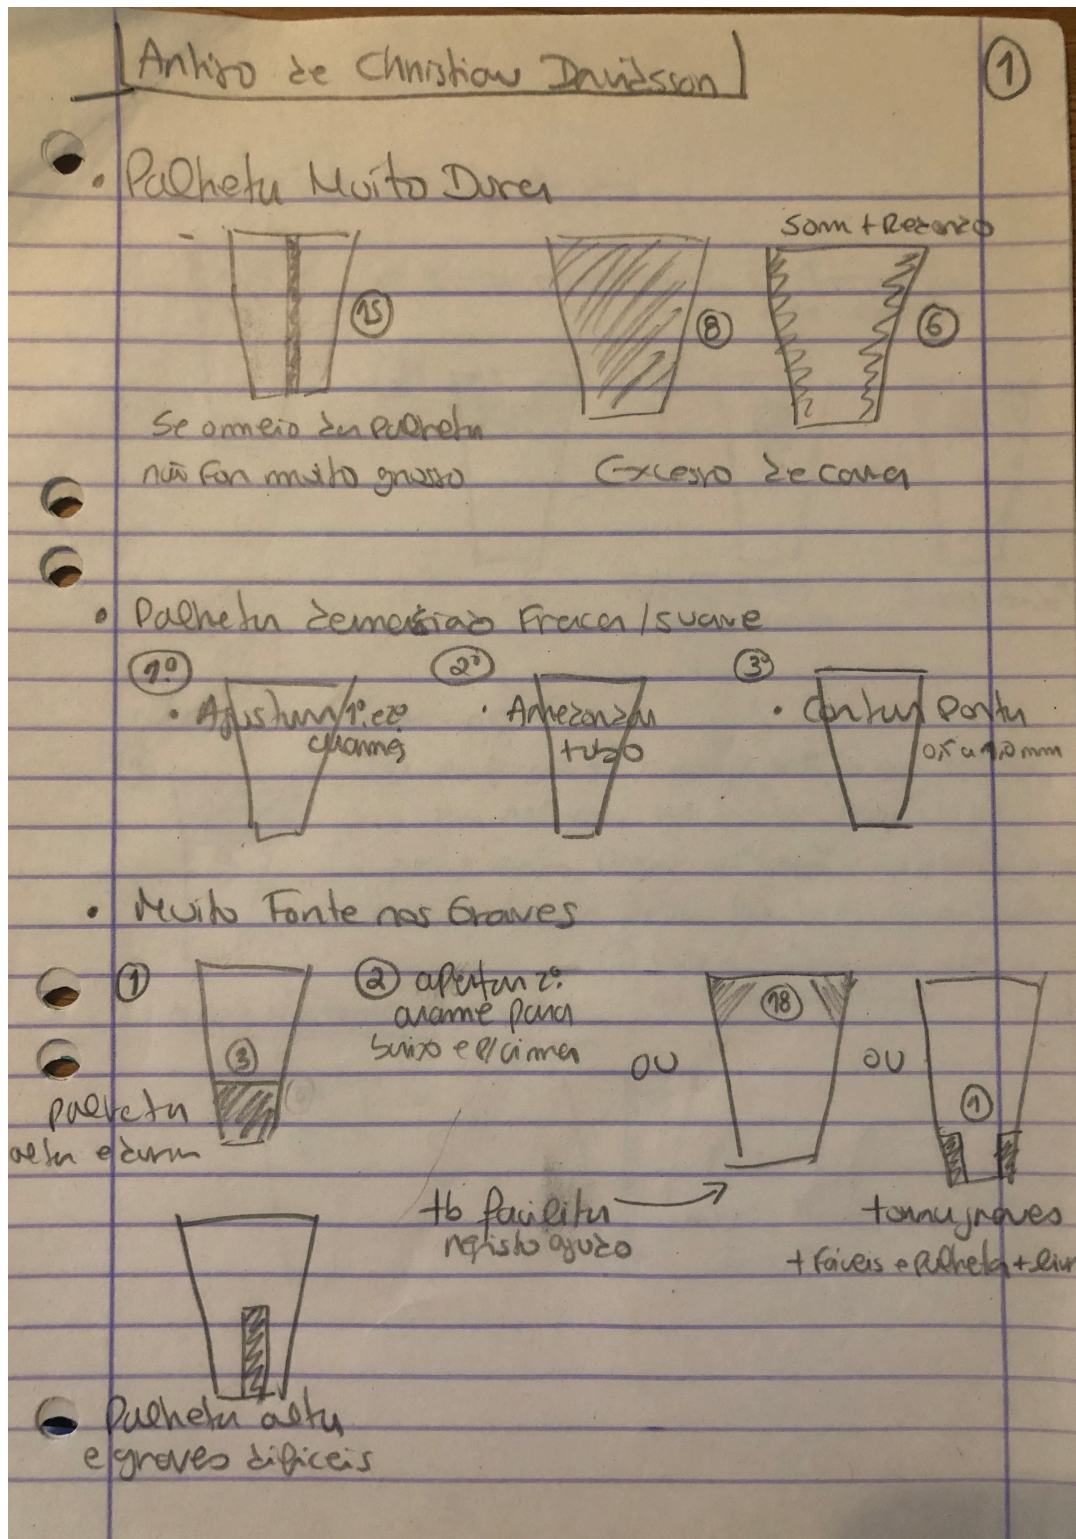 Artigo de Christian Davidsson
1
• Palheta Muito Dura
Som + Redondo
15
8
6
Se o meio da palheta
não for muito grosso
Excesso de cana
• Palheta demasiado Fraca/suave
1º
2º
3º
• Ajustar 1º. e 2º
arames
• Arredondar
tubo
• Cortar Ponta
0,5 a 1,0 mm
• Muito Forte nos Graves
1
3
palheta
alta e dura
2 apertar 2º.
arame para
baixo e p/cima
OU
18
OU
1
tb facilita
registo agudo
torna graves
+ fáceis e palheta + livre
Palheta alta
e graves difíceis